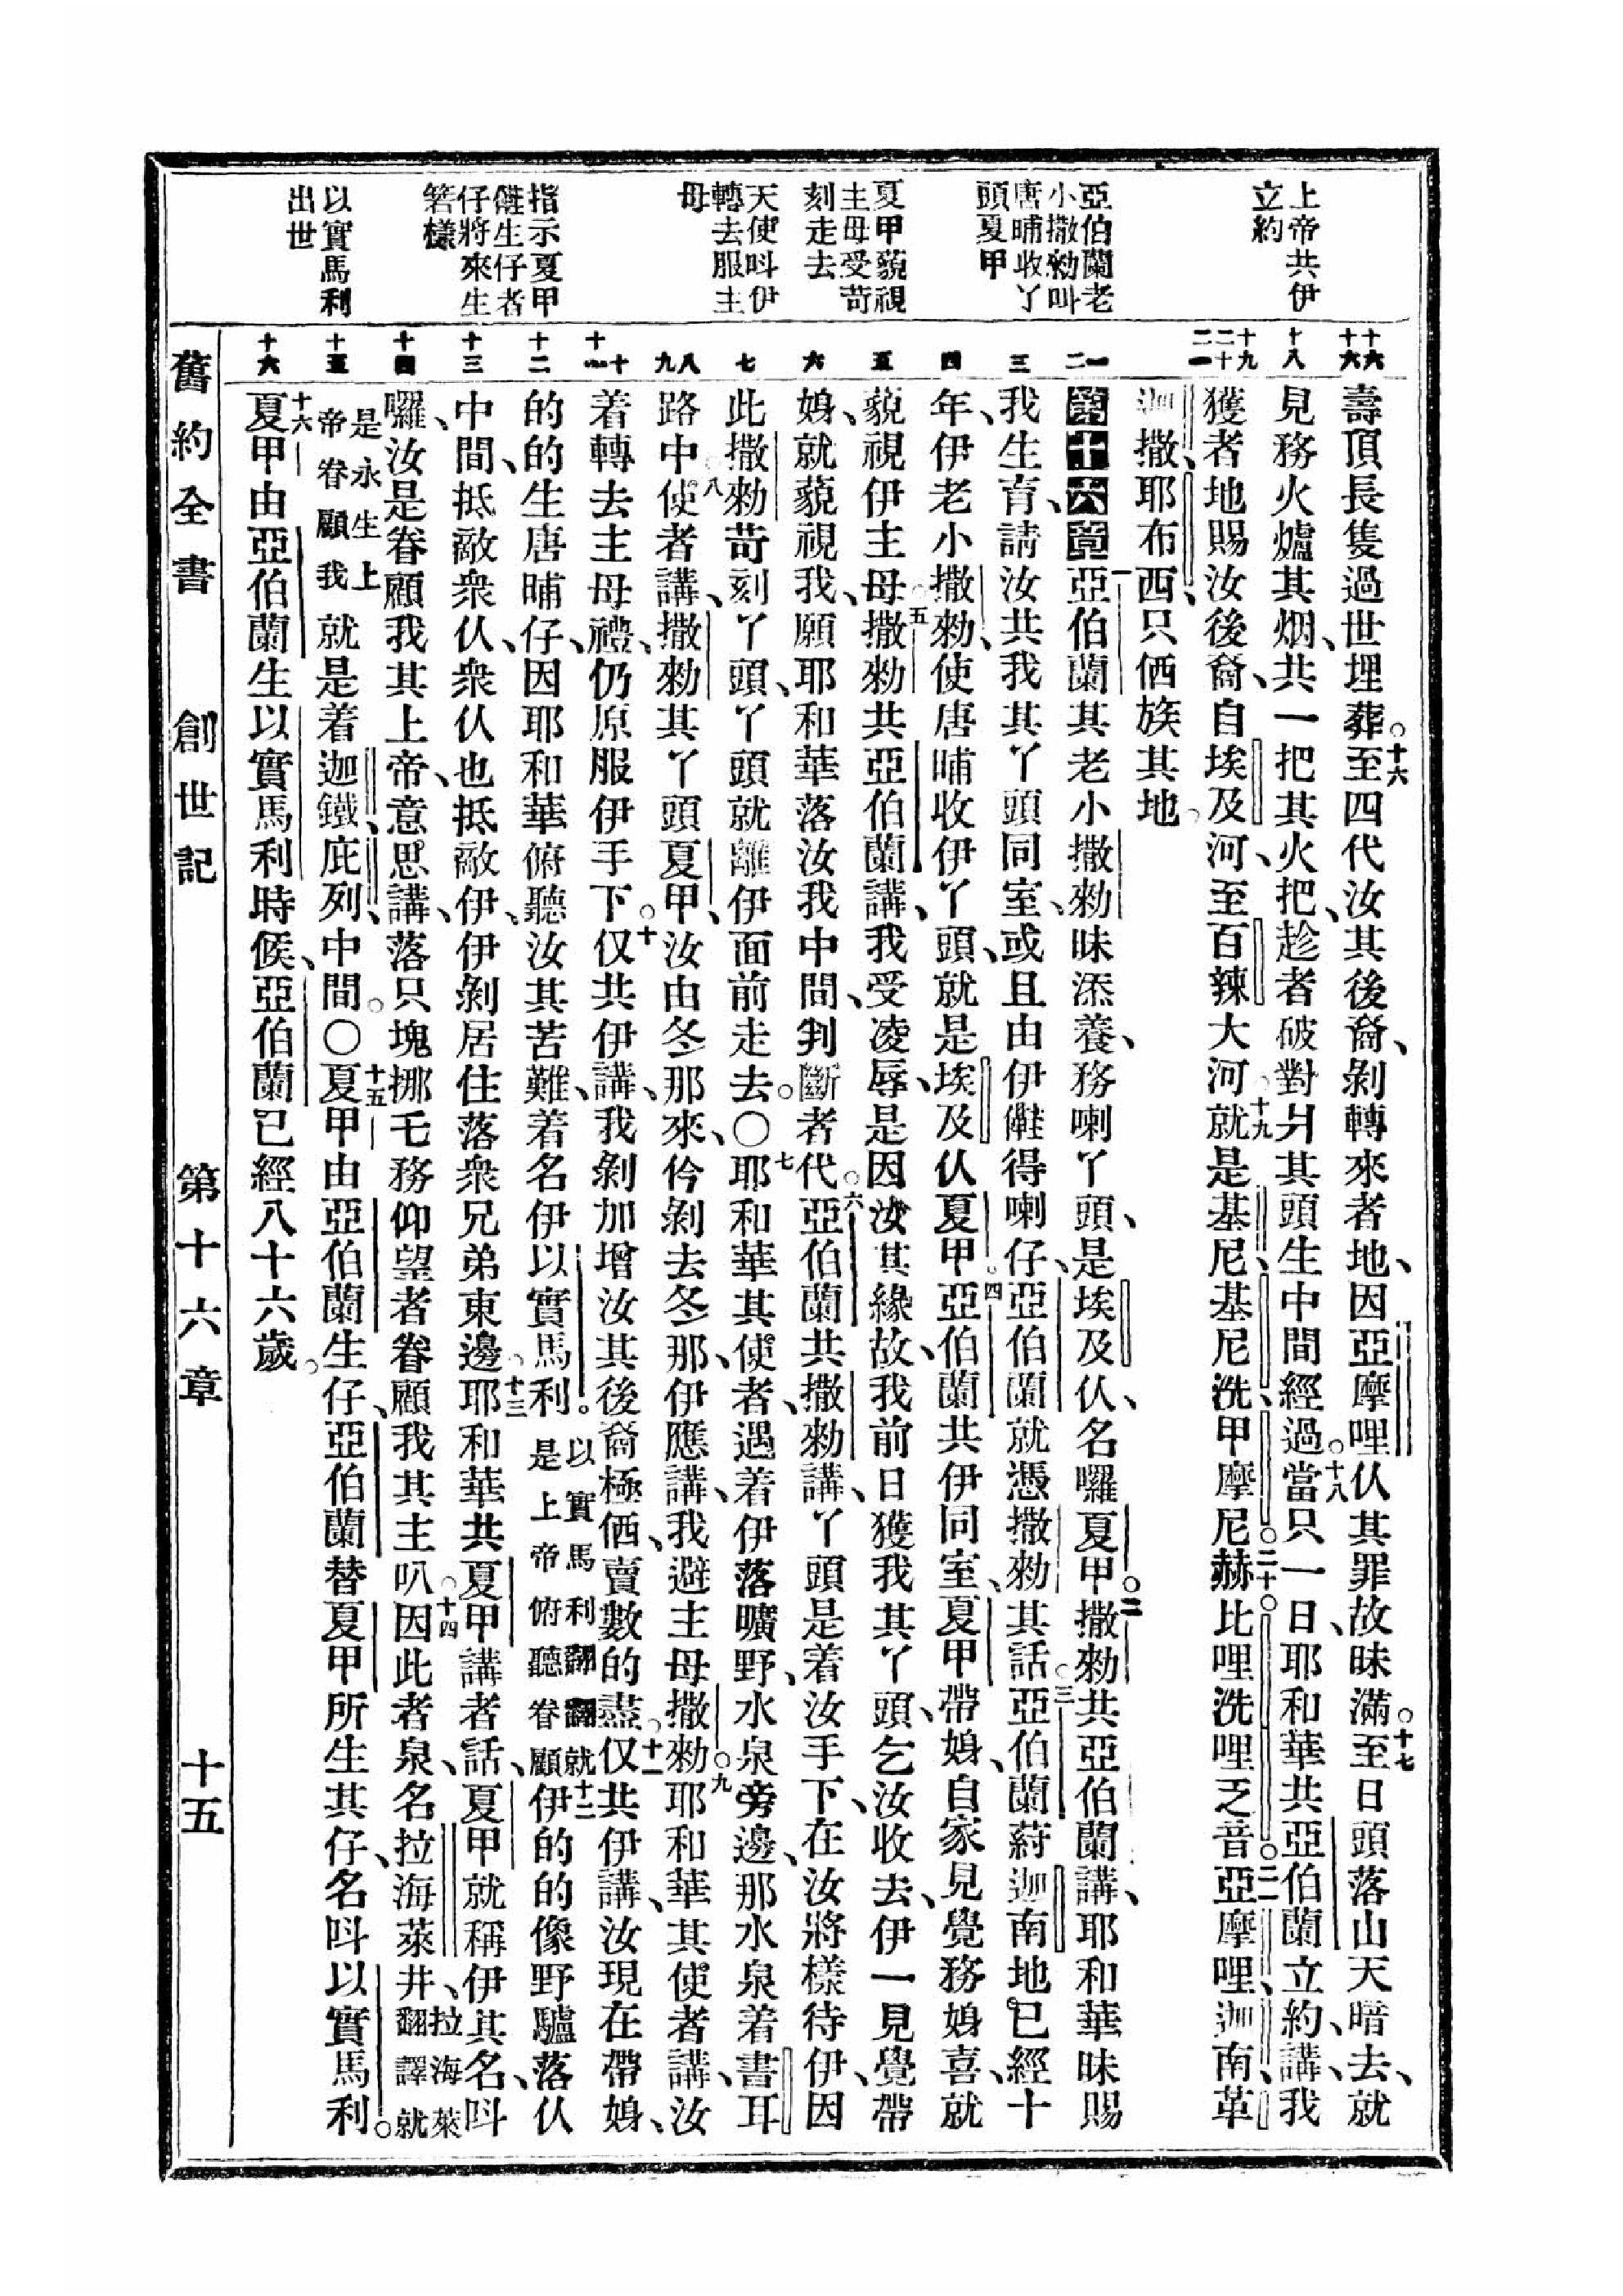 上帝共伊
立約
亞伯蘭老
小撒勑叫
唐晡收丫
頭夏甲
夏甲藐視
主母受苛
刻走去
天使呌伊
轉去服主
母
指示夏甲
䧹生仔者
仔將來生
若樣
以實馬利
出世
壽頂長隻過世埋葬。十六至四代汝其後裔、剝轉來者地、因亞摩哩仈其罪故、昧滿。十七至日頭落山天暗去、就
見務火爐其烟、共一把其火把、趁者破對爿其頭生中間經過。十八當只一日、耶和華共亞伯蘭立約、講、我
獲者地賜汝後裔、自埃及河、至百辣大河。十九就是基尼、基尼洗、甲摩尼。二十赫、比哩洗、哩乏音。二一亞摩哩、迦南、革
迦撒、耶布西、只俩族其地。
第十六章一亞伯蘭其老小撒勑昧添養、務喇丫頭、是埃及仈、名囉夏甲。二撒勑共亞伯蘭講、耶和華昧賜
我生育、請汝共我其丫頭同室、或且由伊䧹得喇仔、亞伯蘭就憑撒勑其話。三亞伯蘭蒔迦南地已經十
年、伊老小撒勑、使唐晡收伊丫頭、就是埃及仈夏甲。四亞伯蘭共伊同室、夏甲帶娠、自家見覺務娠喜、就
藐視伊主母。五撒勑共亞伯蘭講、我受凌辱、是因汝其緣故、我前日獲我其丫頭、乞汝收去、伊一見覺帶
娠、就藐視我、願耶和華落汝我中間、判斷者代。六亞伯蘭共撒勑講、丫頭是着汝手下、在汝將樣待伊、因
此撒勑苛刻丫頭、丫頭就離伊面前走去。〇七耶和華其使者、遇着伊落曠野、水泉旁邊、那水泉着書耳
路中。八使者講、撒勑其丫頭夏甲、汝由冬那來、仱剝去冬那、伊應講、我避主母撒勑。九耶和華其使者講、汝
着轉去主母禮、仍原服伊手下。十仅共伊講、我剝加增汝其後裔極俩、賣數的盡。十一仅共伊講、汝現在帶娠、
的的生唐晡仔、因耶和華俯聽汝其苦難、着名伊以實馬利。以實馬利翻譯就是上帝俯聽眷顧十二伊的的像野驢落仈
中間、抵敵衆仈、衆仈也抵敵伊、伊剝居住落衆兄弟東邊。十三耶和華共夏甲講者話、夏甲就稱伊其名、呌
囉、汝是眷顧我其上帝、意思講、落只塊挪乇務仰望者眷顧我其主叭。十四因此者泉、名拉海萊井、拉海萊翻譯就
是永生上帝眷顧我就是着迦鐵、庇列、中間。〇十五夏甲由亞伯蘭生仔、亞伯蘭替夏甲所生其仔、名呌以實馬利。
十六夏甲由亞伯蘭生以實馬利時候、亞伯蘭已經八十六歲。
舊約全書 創世記 第十六章 十五